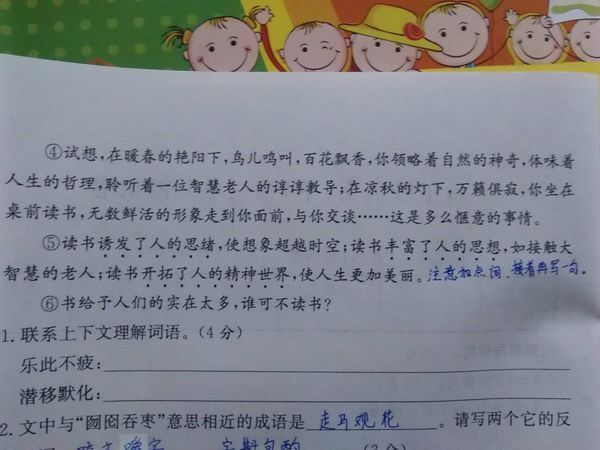 ④试想,在暖春的艳阳下,鸟儿鸣叫,百花飘香,你领略着自然的神奇,体味着
人生的哲理,聆听着一位智慧老人的谆谆教导;在凉秋的灯下,万籁俱寂,你坐在
桌前读书,无数鲜活的形象走到你面前,与你交谈……这是多么惬意的事情。
⑤读书诱发了人的思绪,使想象超越时空;读书丰富了人的思想,如接触大
智慧的老人;读书开拓了人的精神世界,使人生更加美丽。注意加点词,接着再写一句。
⑥书给予人们的实在太多,谁可不读书?
1.联系上下文理解词语。(4分)
乐此不疲:
潜移默化:
2.文中与“囫囵吞枣”意思相近的成语是 走马观花 。请写两个它的反